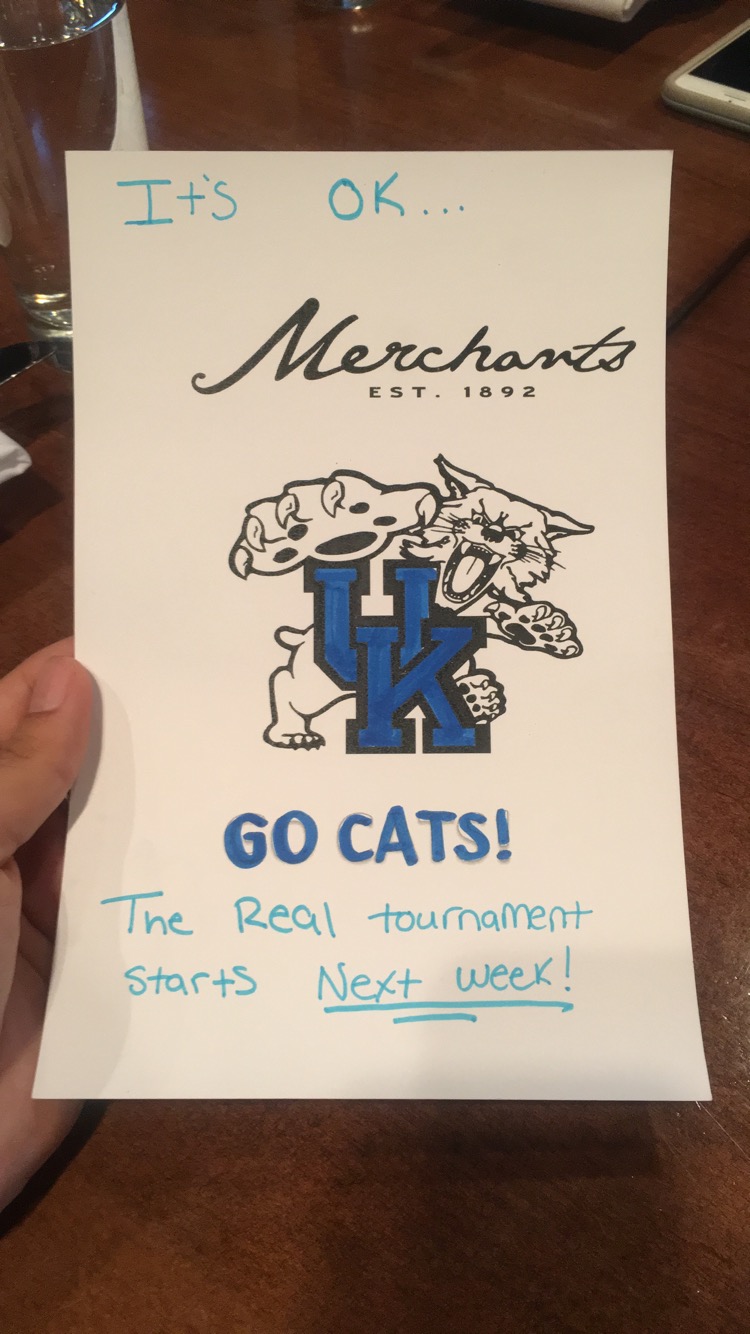 It's OK...
Merchants
EST. 1892
UK
GO CATS!
The Real tournament
starts Next week!